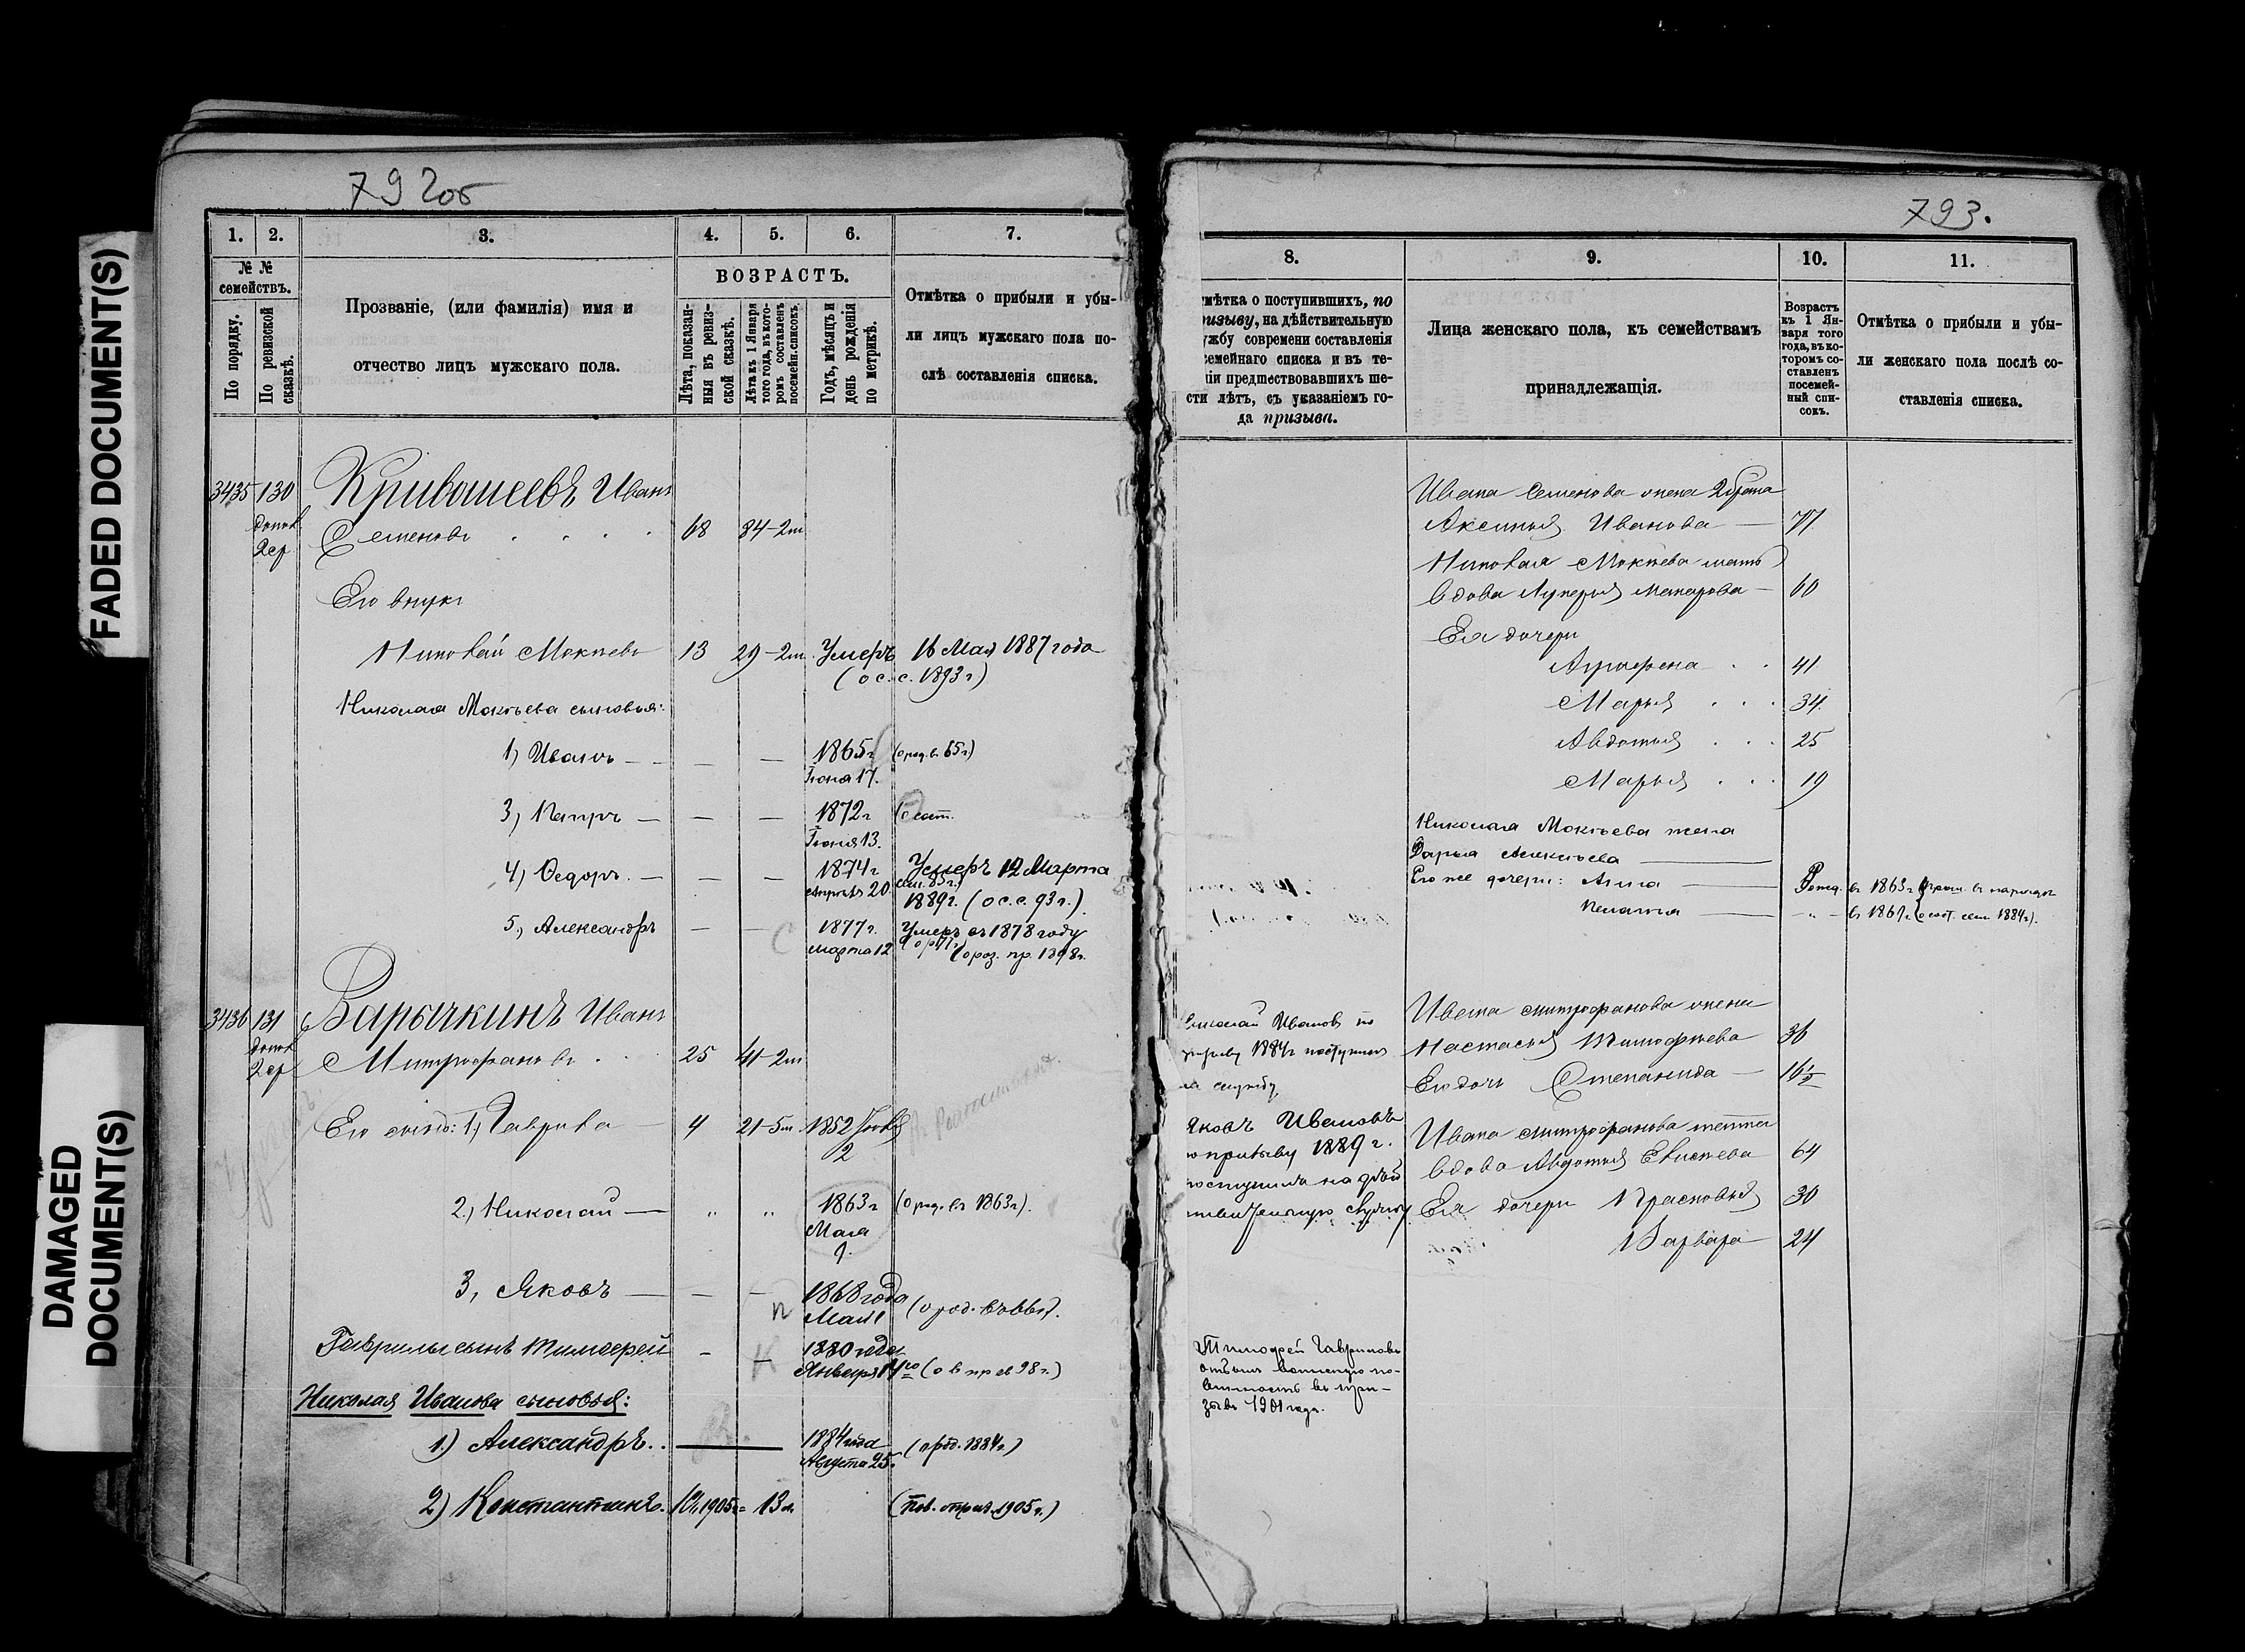 FADED DOCUMENT(S)
DAMAGED
DOCUMENT(S)
792об
1. 2. 3. 4. 5. 6. 7.
№ №
семействъ.
По порядку.
По ревизской
сказкѣ.
Прозваніе, (или фамилія) имя и
отчество лицъ мужскаго пола.
ВОЗРАСТЪ.
Лѣта, показан-
ныя въ ревиз-
ской сказкѣ.
Лѣта къ 1 Января
того года, въ кото-
ромъ составленъ
посемейн. списокъ.
Годъ, мѣсяцъ и
день рожденія
по метрикѣ.
Отмѣтка о прибыли и убы-
ли лицъ мужскаго пола по-
слѣ составленія списка.
3435 130 Кривошеевъ Иванъ
2ср Семеновъ 68 84-2м
Его внукъ
Николай Мокѣевъ 13 29-2м Умеръ 16 Мая 1887 года
(о с. с. 1893 г)
Николая Мокѣева сыновья:
1) Иванъ — — — 1865 г (о род. в. 65 г)
Іюня 17.
3) Петръ — — — 1872 г
Іюня 13.
4) Ѳедоръ. — — — 1874 г Умеръ 12 Марта
Апрѣля 20 1889 г. (о с. с. 93 г.)
5) Александръ — — 1877 г. Умеръ въ 1878 году
марта 12
3436 131 Варычкинъ Иванъ
2ср Митрофановъ 25 41-2м
Его сынъ: 1) Гаврила 4 21-5м 1852
2
2) Николай — " " 1863 г (о род. въ 1863 г).
Мая
9.
3, Яковъ — — — 1868 года
Мая 1
Гаврилы сынъ Тимоѳей — — 1880 года
Января 14го
Николая Иванова сыновья:
1.) Александръ. 1884 года (о род. 1884 г.)
Августа 25.
2) Константинъ. 1905 г = 13 л.
793.
8. 9. 10. 11.
мѣтка о поступившихъ, по
ризыву, на дѣйствительную
ужбу современи составленія
семейнаго списка и въ те-
ніи предшествовавшихъ ше-
сти лѣтъ, съ указаніемъ го-
да призыва.
Лица женскаго пола, къ семействамъ
принадлежащія.
Возрастъ
къ 1 Ян-
варя того
года, въ ко-
торомъ со-
ставленъ
посемей-
ный спи-
сокъ.
Отмѣтка о прибыли и убы-
ли женскаго пола послѣ со-
ставленія списка.
Ивана Семенова жена 2 брака
Аксинья Иванова — 77
Николая Мокѣева мать
вдова Лукерья Макарова — 60
Ея дочери
Аграфена 41
Марья 34
Авдотья 25
Марья 19
Николая Мокѣева жена
Дарья Алексѣева —
Его же дочери: Анна — Рожд. въ 1863 г
Пелагея — - " -
Ивана Митрофанова жена
Настасья Тимофѣева 36
Его дочь Степанида — 16½
Ивана Митрофанова тетка
вдова Авдотья Евсѣева 64
Ея дочери Прасковья 30
Варвара 24
Николай Ивановъ по
призыву 1884 г поступилъ
на службу
Яковъ Ивановъ
по призыву 1889 г.
поступилъ на дѣй
ствительную службу
Тимофей Гавриловъ
отбылъ воинскую по-
винность въ при-
зывъ 1901 года.